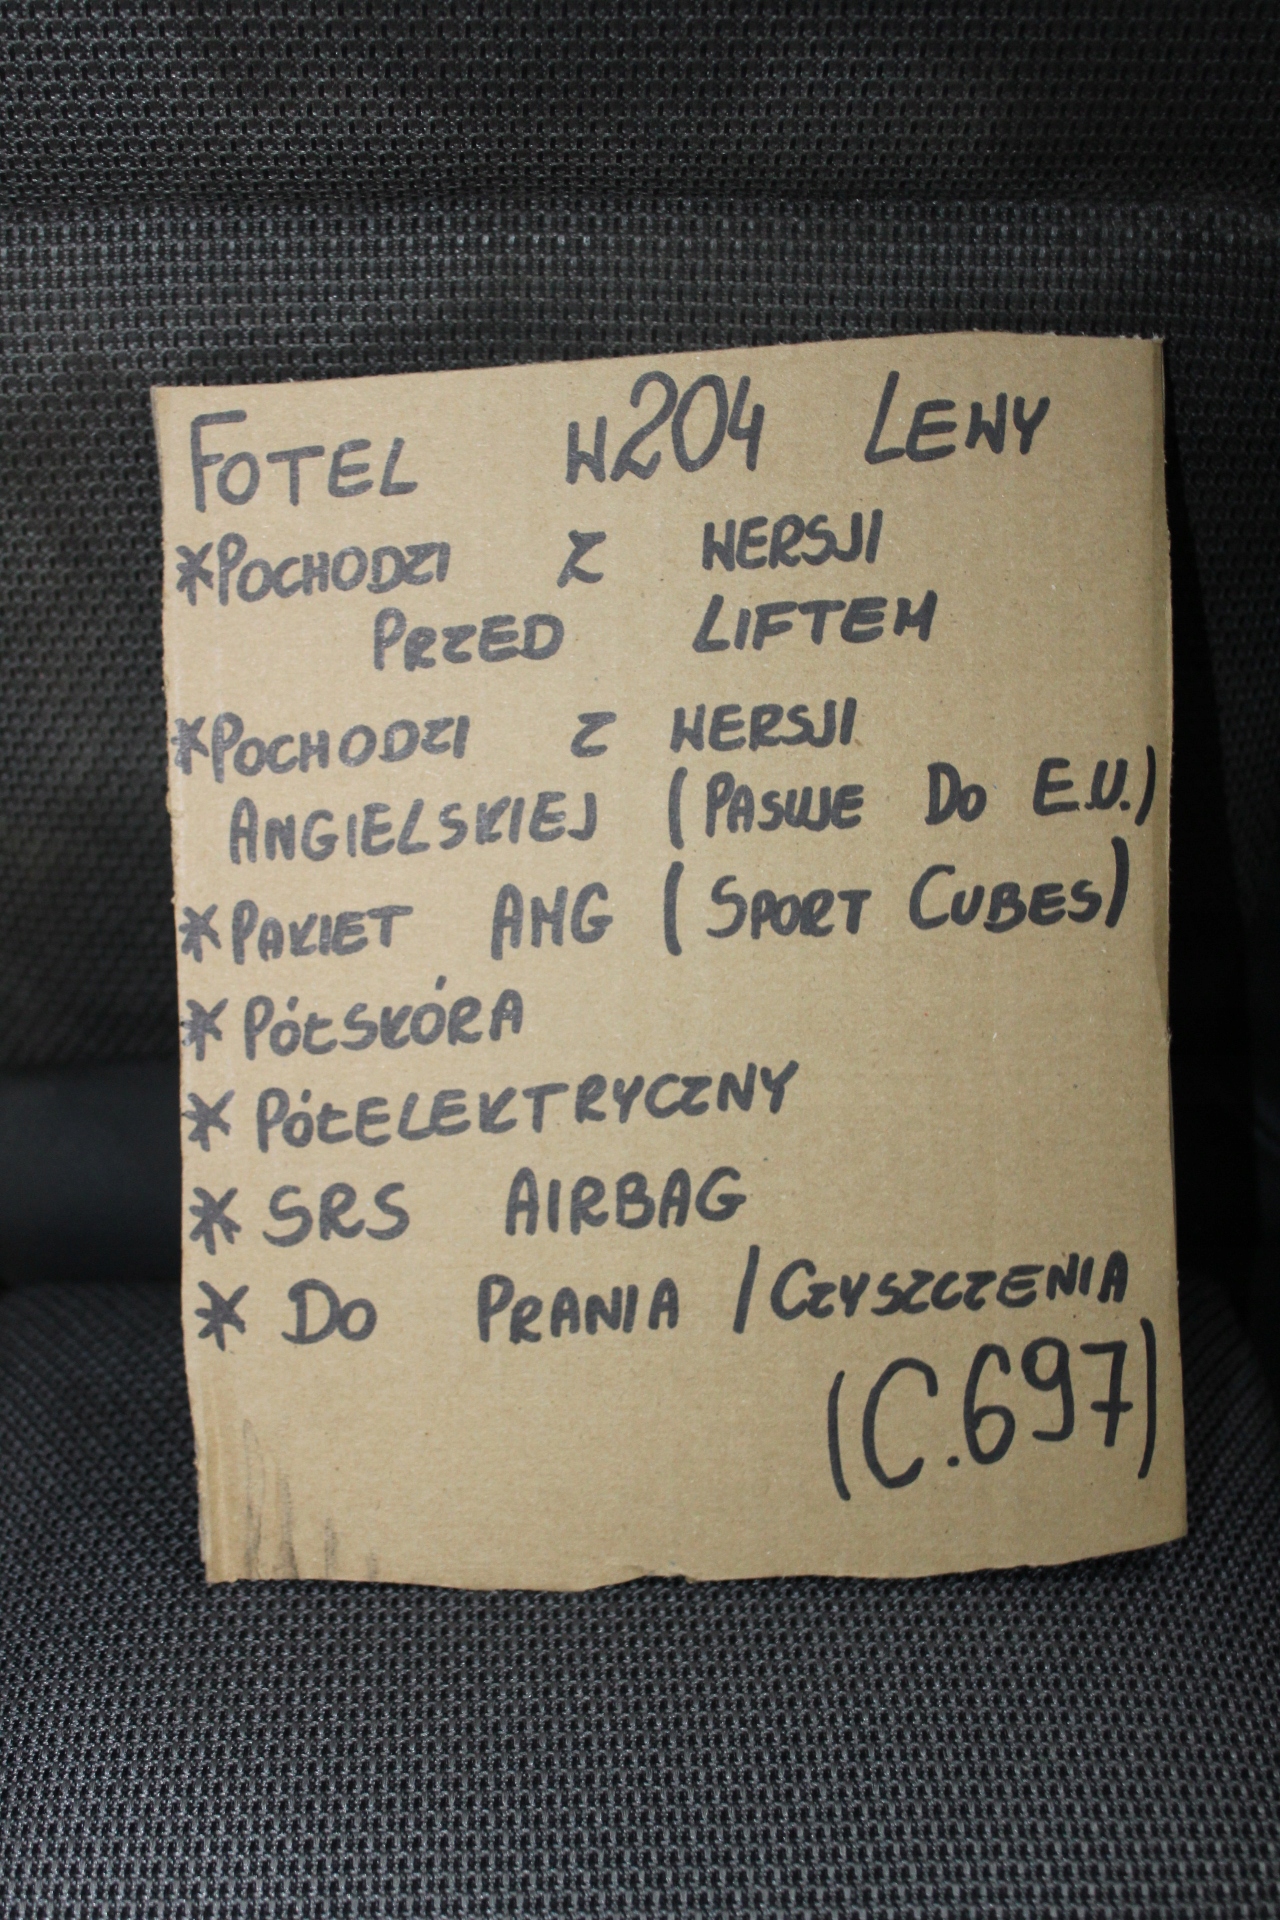 FOTEL W204 LEWY
*POCHODZI Z WERSJI
PRZED LIFTEM
*POCHODZI Z WERSJI
ANGIELSKIEJ (PASUJE DO E.U.)
*PAKIET AMG (SPORT CUBES)
* PÓŁSKÓRA
* PÓŁELEKTRYCZNY
* SRS AIRBAG
* DO PRANIA / CZYSZCZENIA
(C.697)